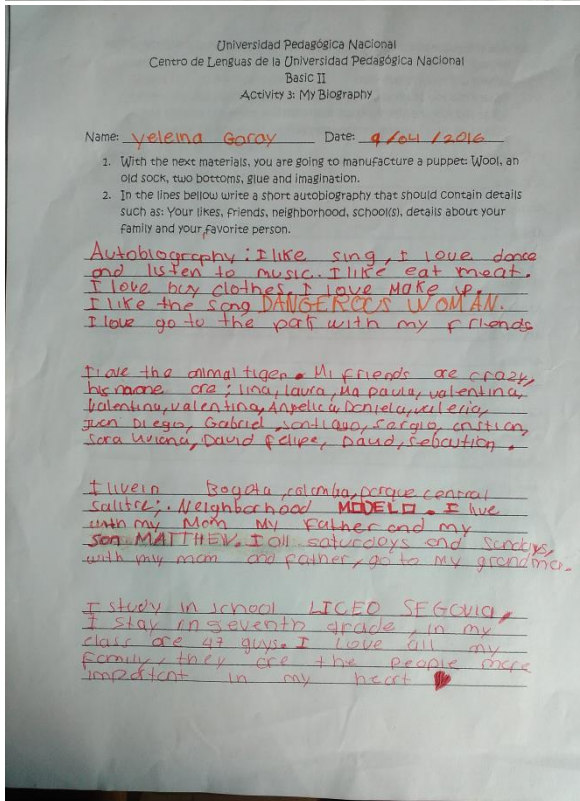 Universidad Pedagógica Nacional
Centro de Lenguas de la Universidad Pedagógica Nacional
Basic II
Activity 3: My Biography
Name: Yeleina Garay Date: 9/04/2016
1. With the next materials, you are going to manufacture a puppet: Wool, an
old sock, two bottoms, glue and imagination.
2. In the lines bellow write a short autobiography that should contain details
such as: Your likes, friends, neighborhood, school(s), details about your
family and your favorite person.
Autobiography: I like sing, I love dance
and listen to music. I like eat meat.
I love buy clothes. I love make up.
I like the song DANGEROUS WOMAN.
I love go to the park with my friends
the animal tiger. Mi friends are crazy,
his name are: lina, laura, Ma paula, valentina,
valentina, valentina, Angelica, Daniela, valeria,
juan Diego, Gabriel, santiago, sergio, cristian,
sara Viviana, David felipe, David, sebastian.
I live in Bogota, colombia, parque central
salitre; Neighborhood MODELO. I live
with my Mom My Father and my
son MATTHEW. I all saturdays and sundays,
with my mom and father, go to my grandma.
I study in school LICEO SEGOVIA,
I stay in seventh grade, in my
class are 47 guys. I Love all my
Family, they are the people more
important in my heart